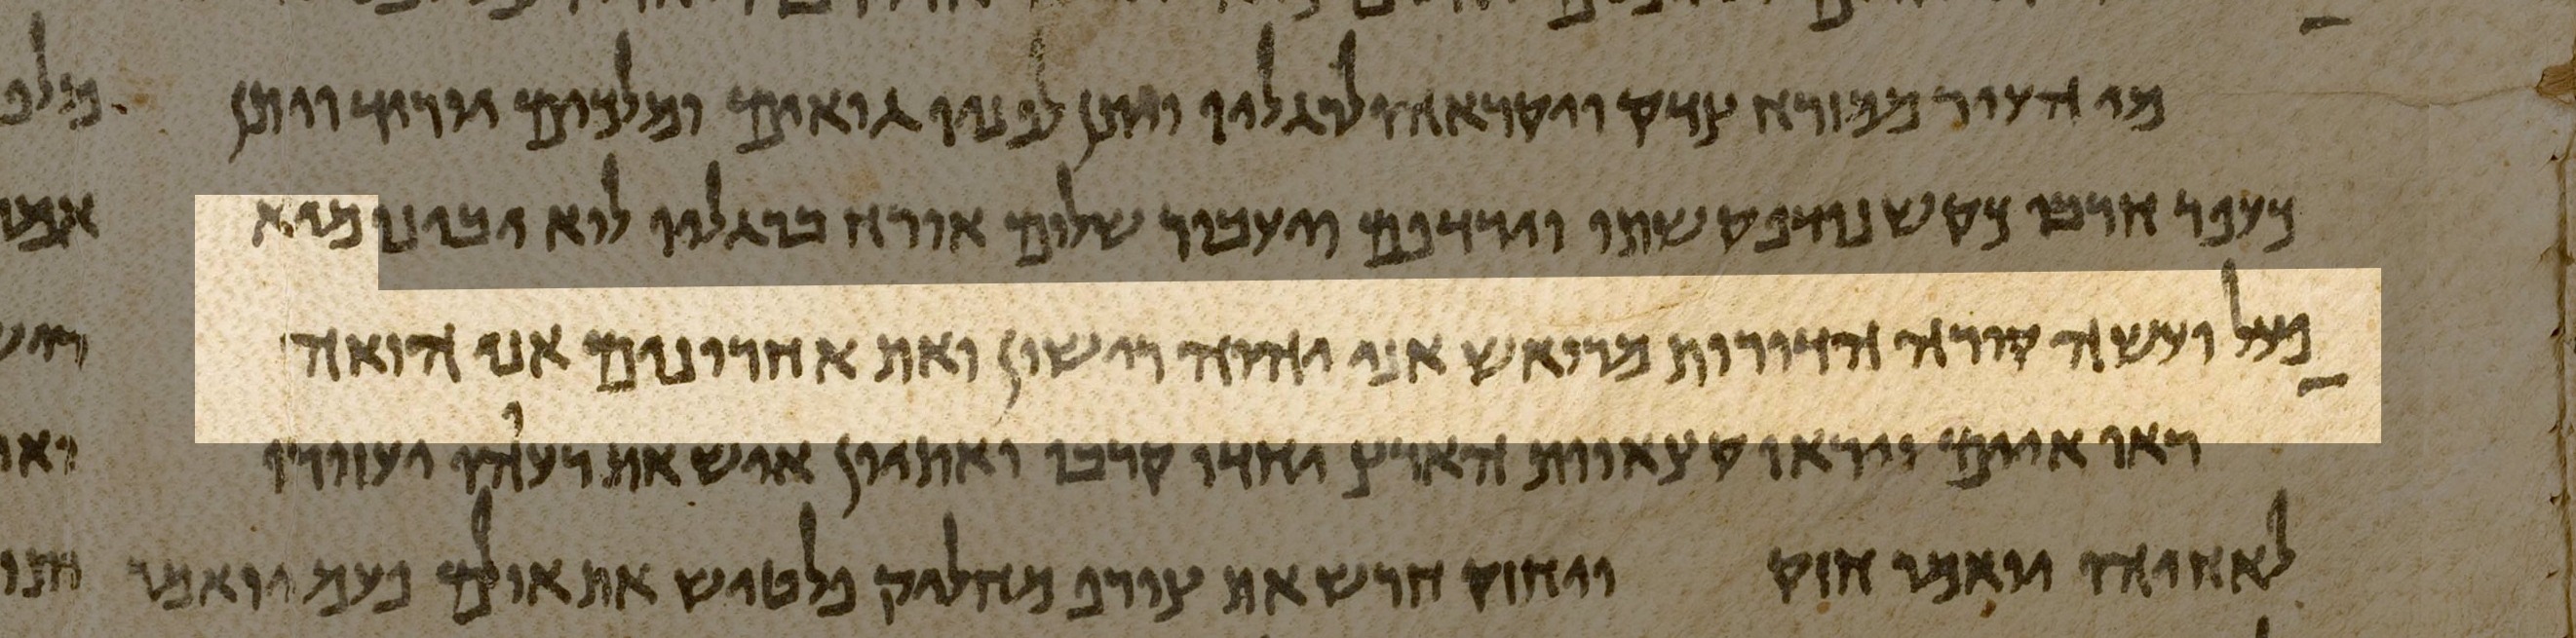 מי העיר ממזרח צדק ויקראהו לרגליו ויתן לפניו גואים ומלכים יוריד ויתן
כעפר חרבו כקש נודף קשתו וירדפם ויעבור שלום אורח ברגליו לוא יבינו מיא
פעל ועשה קורה הדורות מרואש אני יהוה רישון ואת אחרונים אני הואה
ראו איים ויראו קצאוות הארץ יחדו קרבו ואתיון איש את רעהו יעזורו
לאחיהו יואמר חזק ויחזק חרש את צורף מחליק פלטיש את אולם פעם יואמר